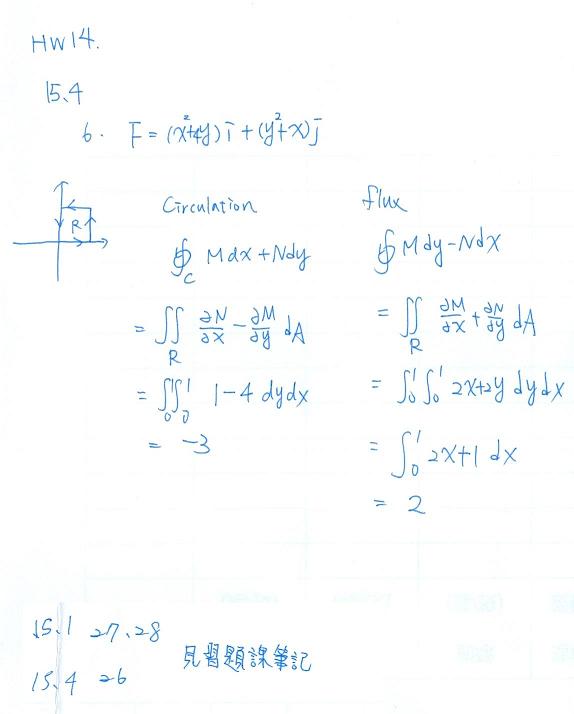 HW14.
15.4
6. F = (x²+4y) i + (y²+x) j
R
Circulation
∮_C Mdx + Ndy
= ∬_R ∂N/∂x − ∂M/∂y dA
= ∫₀¹∫₀¹ 1−4 dydx
= −3
flux
∮ Mdy − Ndx
= ∬_R ∂M/∂x + ∂N/∂y dA
= ∫₀¹∫₀¹ 2x+2y dydx
= ∫₀¹ 2x+1 dx
= 2
15.1 27、28
15.4 26
見習題課筆記